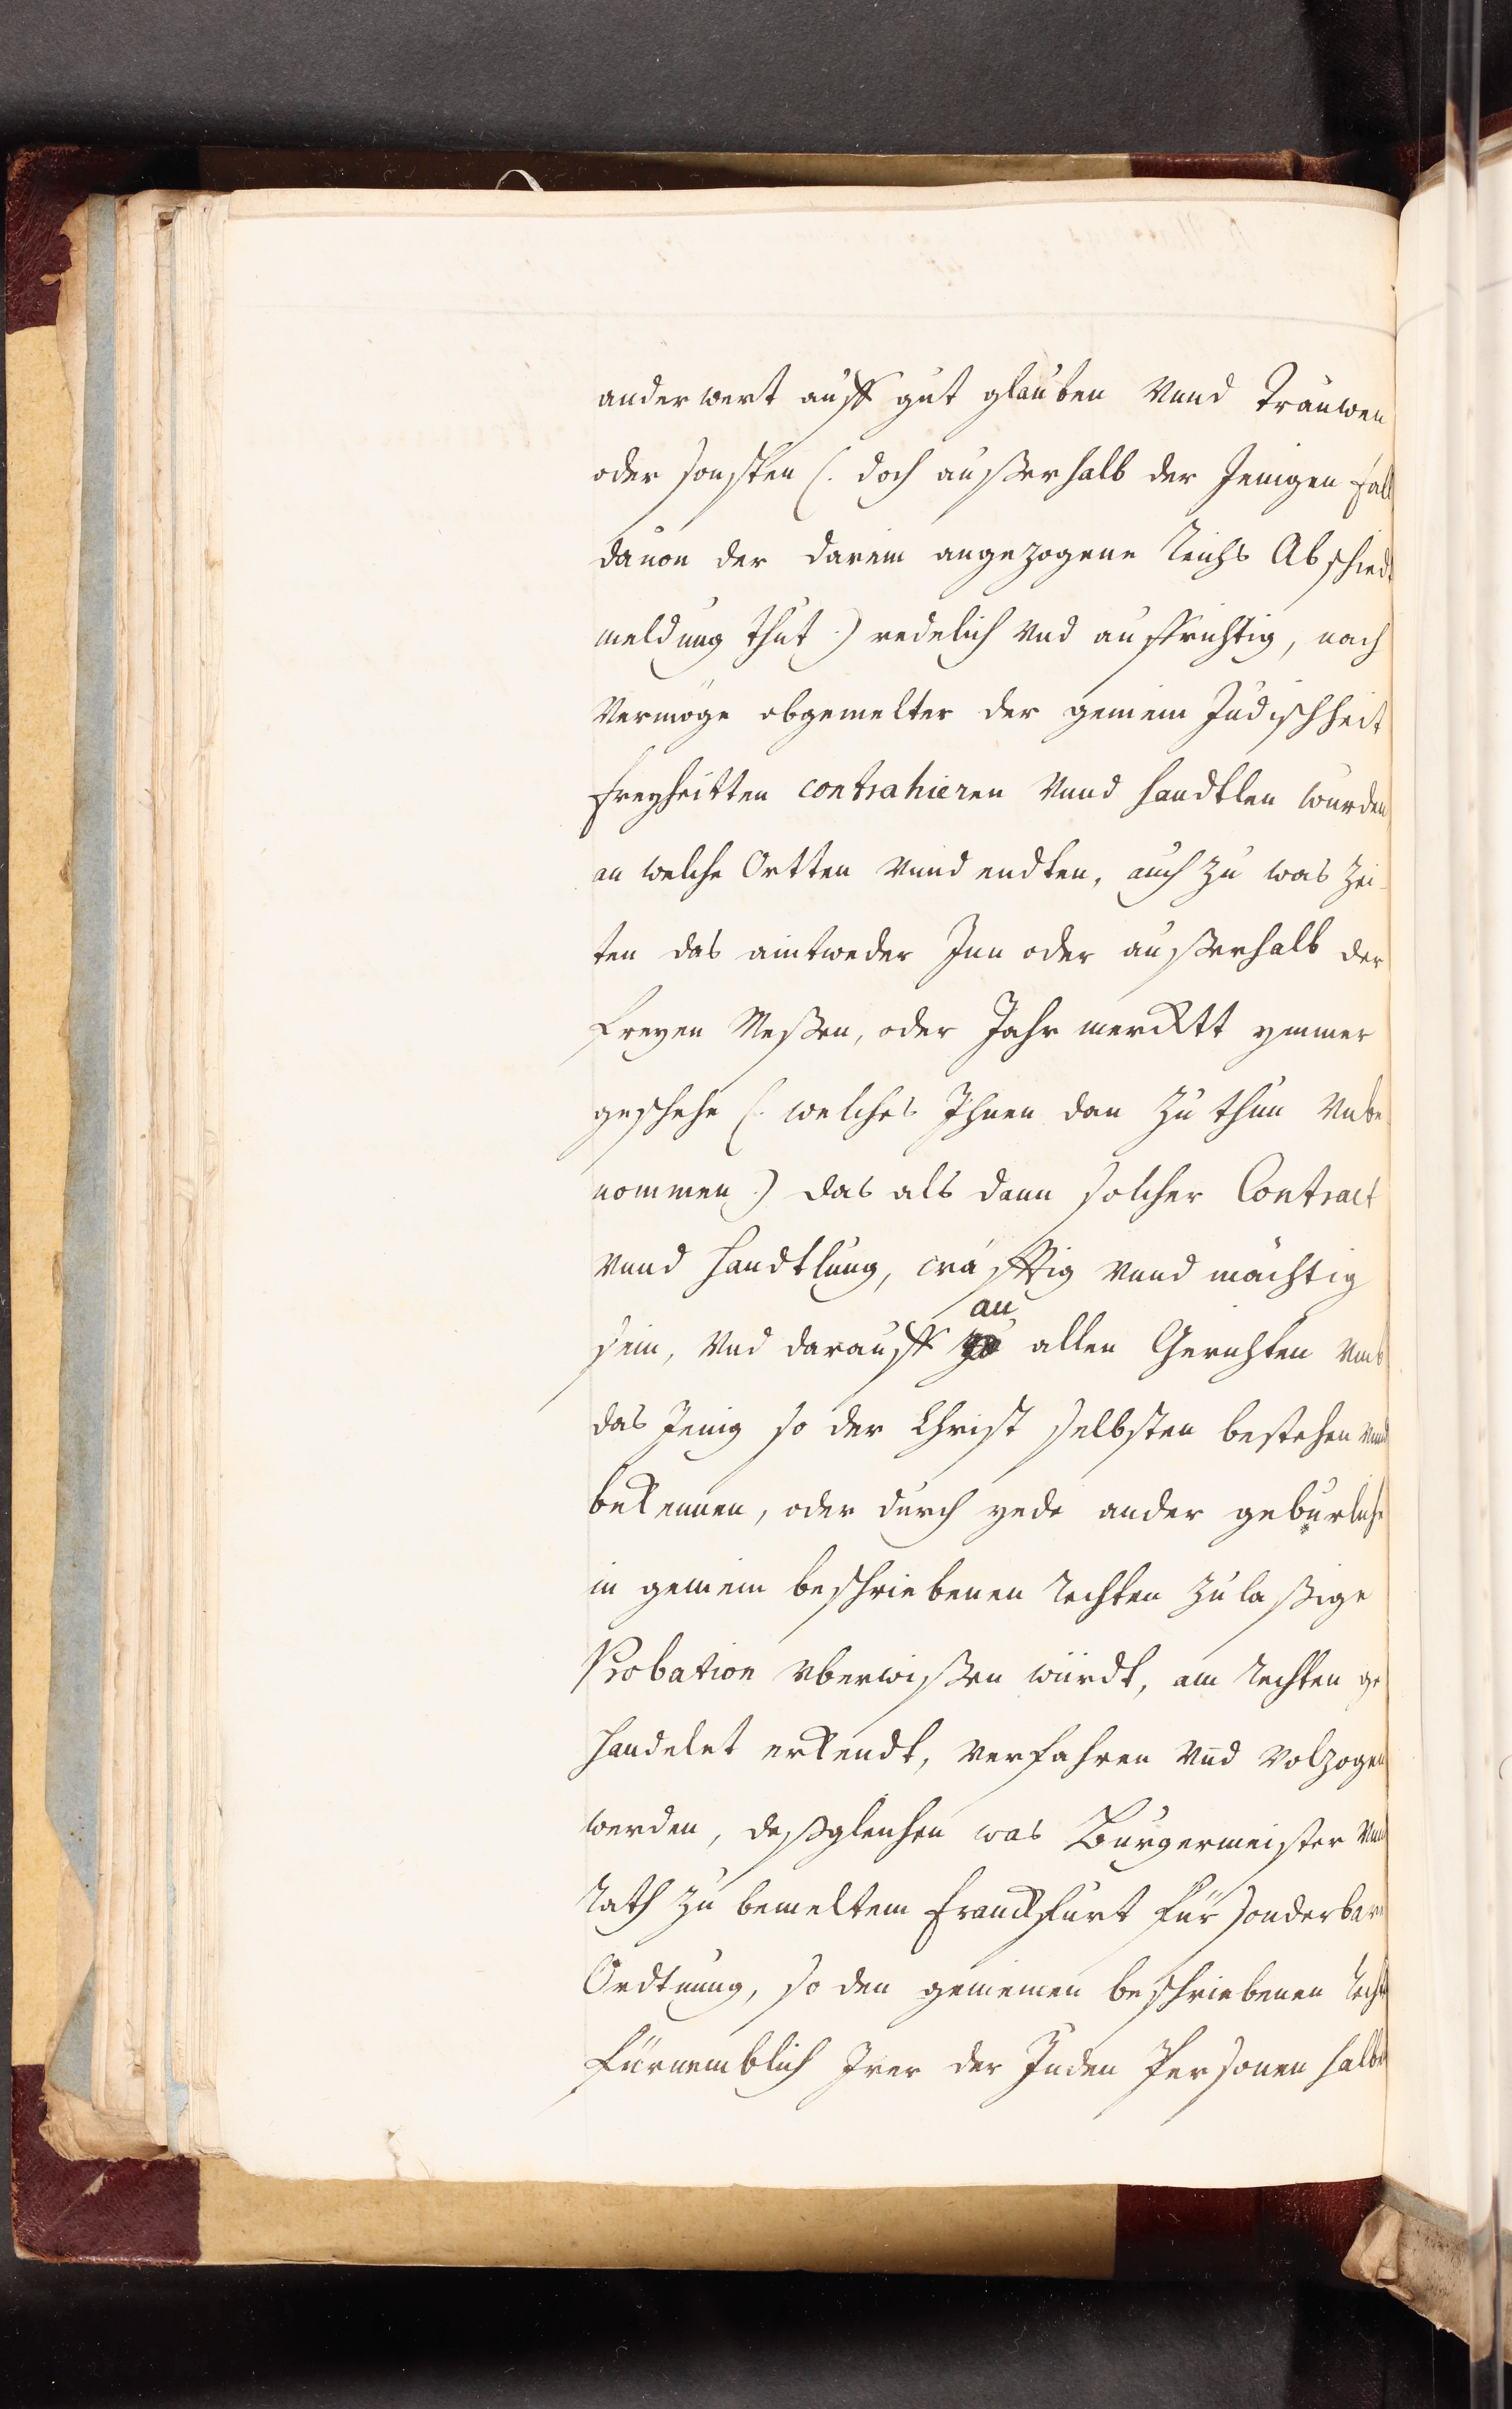 anderwert auff gut glauben Vnnd Trauwen
oder sonsten (. doch außerhalb der Jenigen fäll
dauon der darein angezogene Reichs Abschiedt
meldung thut .) redelich Vnd auffrichtig, nach
Vermöge obgemelter der gemein Judischheit
freyheitten contrahieren Vnnd handtlen wurden
an welche Ortten Vnnd endten, auch zu was Zei-
ten das eintweder Inn oder außerhalb der
freyen Meßen, oder Jahr merktt ymmer
geschehe (. welches Ihnen dan zu thun Vnbe
nommen .) das als dann solcher Contract
Vnnd handtlung, cräfftig Vnnd mächtig
sein, Vnd darauff an allen Gerichten Vmb
das Jenig so der Christ selbsten bestehen Vnnd
bekennen, oder durch yede ander geburliche
in gemein beschriebenen Rechten zulaßige
Probation Vberwißen würdt, am Rechten ge
handelet erkendt, Verfahren Vnd Volzogen
werden, deßgleichen was Burgermeister Vnnd
Rath zu bemeltem Franckfurt für sonderbare
Ordtnung, so den gemeinen beschriebenen Rechten
fürnemblich Irer der Juden Personen halben